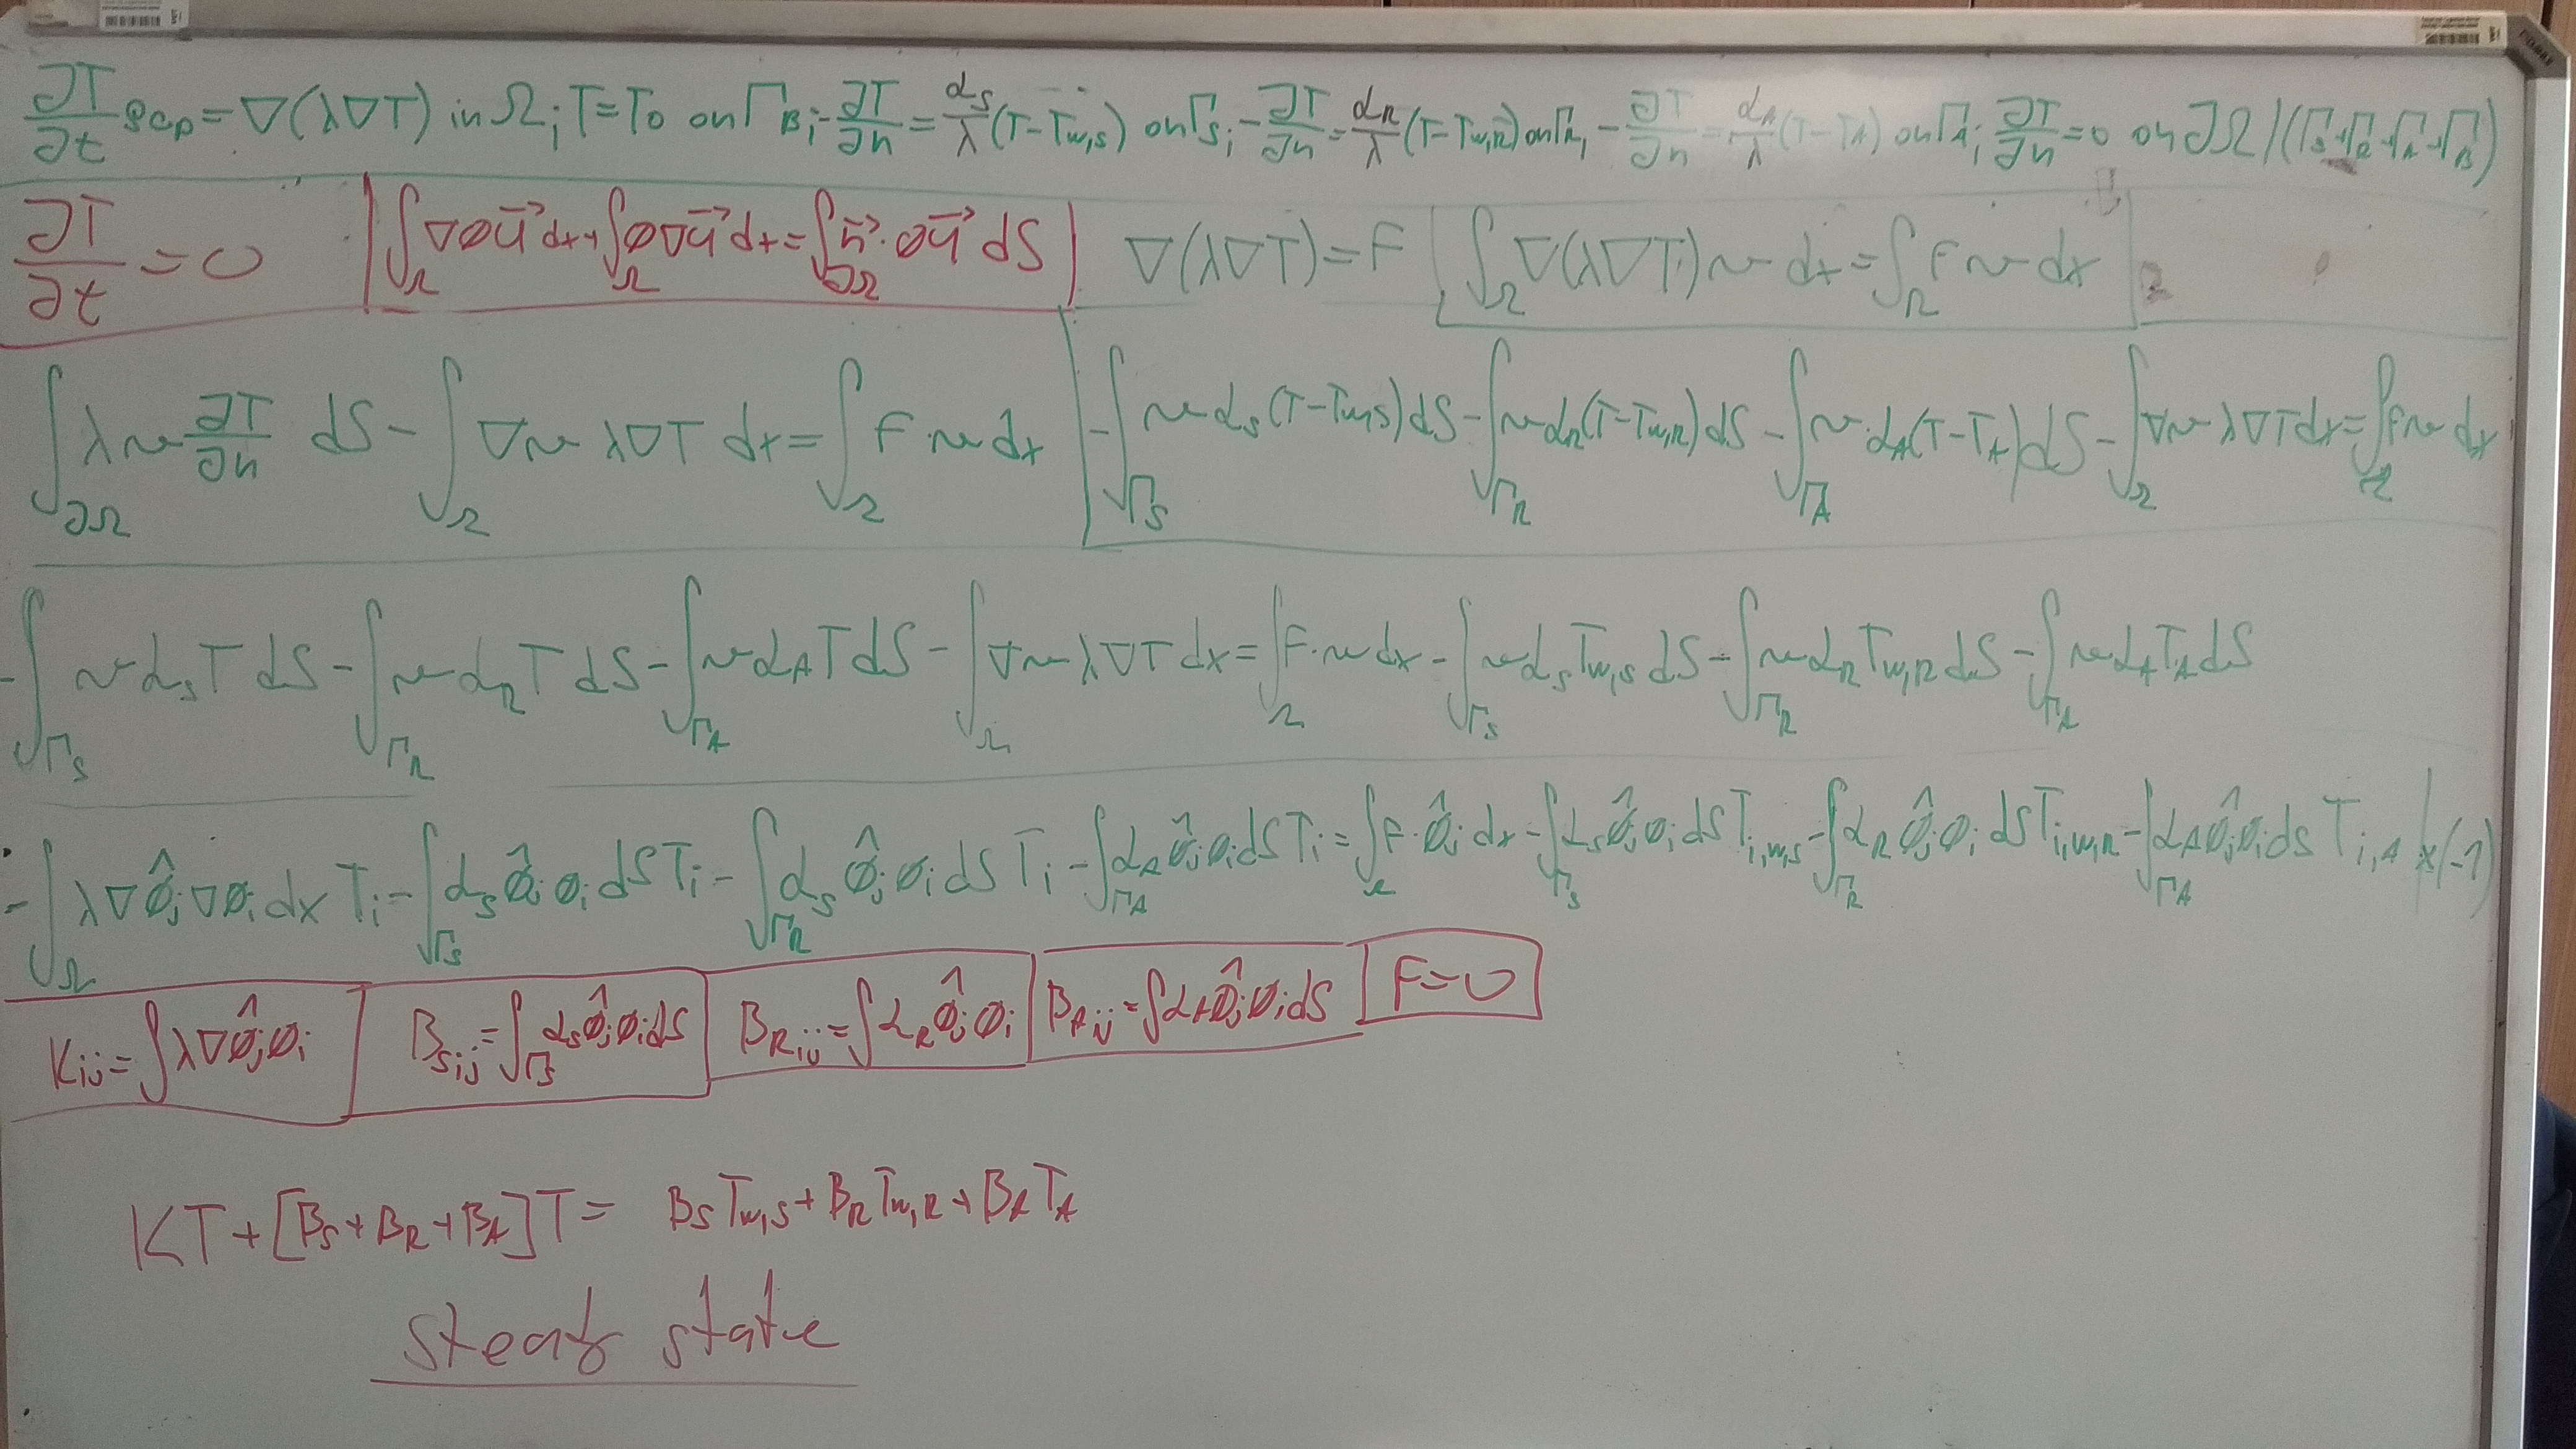 ∂T/∂t ρcp = ∇(λ∇T) in Ω; T=T0 on Γ_B; -∂T/∂n = α_S/λ (T-T_w,S) on Γ_S; -∂T/∂n = α_R/λ (T-T_w,R) on Γ_R, -∂T/∂n = α_A/λ (T-T_A) on Γ_A; ∂T/∂n = 0 on ∂Ω/(Γ_S+Γ_R+Γ_A+Γ_B)
∂T/∂t = 0 | ∫_Ω ∇Ø u⃗ dx + ∫_Ω Ø∇u⃗ dx = ∫_∂Ω n⃗·Øu⃗ dS | ∇(λ∇T) = F | ∫_Ω ∇(λ∇T) v dx = ∫_Ω F v dx
∫_∂Ω λ v ∂T/∂n dS - ∫_Ω ∇v λ∇T dx = ∫_Ω F·v dx | -∫_Γ_S v α_S (T-T_w,S) dS - ∫_Γ_R v α_R (T-T_w,R) dS - ∫_Γ_A v·α_A (T-T_A) dS - ∫_Ω ∇v λ∇T dx = ∫_Ω F v dx
-∫_Γ_S v α_S T dS - ∫_Γ_R v α_R T dS - ∫_Γ_A v α_A T dS - ∫_Ω ∇v λ∇T dx = ∫_Ω F·v dx - ∫_Γ_S v α_S T_w,S dS - ∫_Γ_R v α_R T_w,R dS - ∫_Γ_A v α_A T_A dS
-∫_Ω λ∇Ø̂_j ∇Ø_i dx T_i - ∫_Γ_S α_S Ø̂_j Ø_i dS T_i - ∫_Γ_R α_S Ø̂_j Ø_i dS T_i - ∫_Γ_A α_A Ø̂_j Ø_i dS T_i = ∫_Ω F·Ø̂_j dx - ∫_Γ_S α_S Ø̂_j Ø_i dS T_i,w,S - ∫_Γ_R α_R Ø̂_j Ø_i dS T_i,w,R - ∫_Γ_A α_A Ø̂_j Ø_i dS T_i,A | x(-1)
K_ij = ∫ λ∇Ø̂_j Ø_i | B_Sij = ∫_Γ_S α_S Ø̂_j Ø_i dS | B_Rij = ∫ α_R Ø̂_j Ø_i | B_Aij = ∫ α_A Ø̂_j Ø_i dS | F=0
KT + [B_S + B_R + B_A] T = B_S T_w,S + B_R T_w,R + B_A T_A
steady state